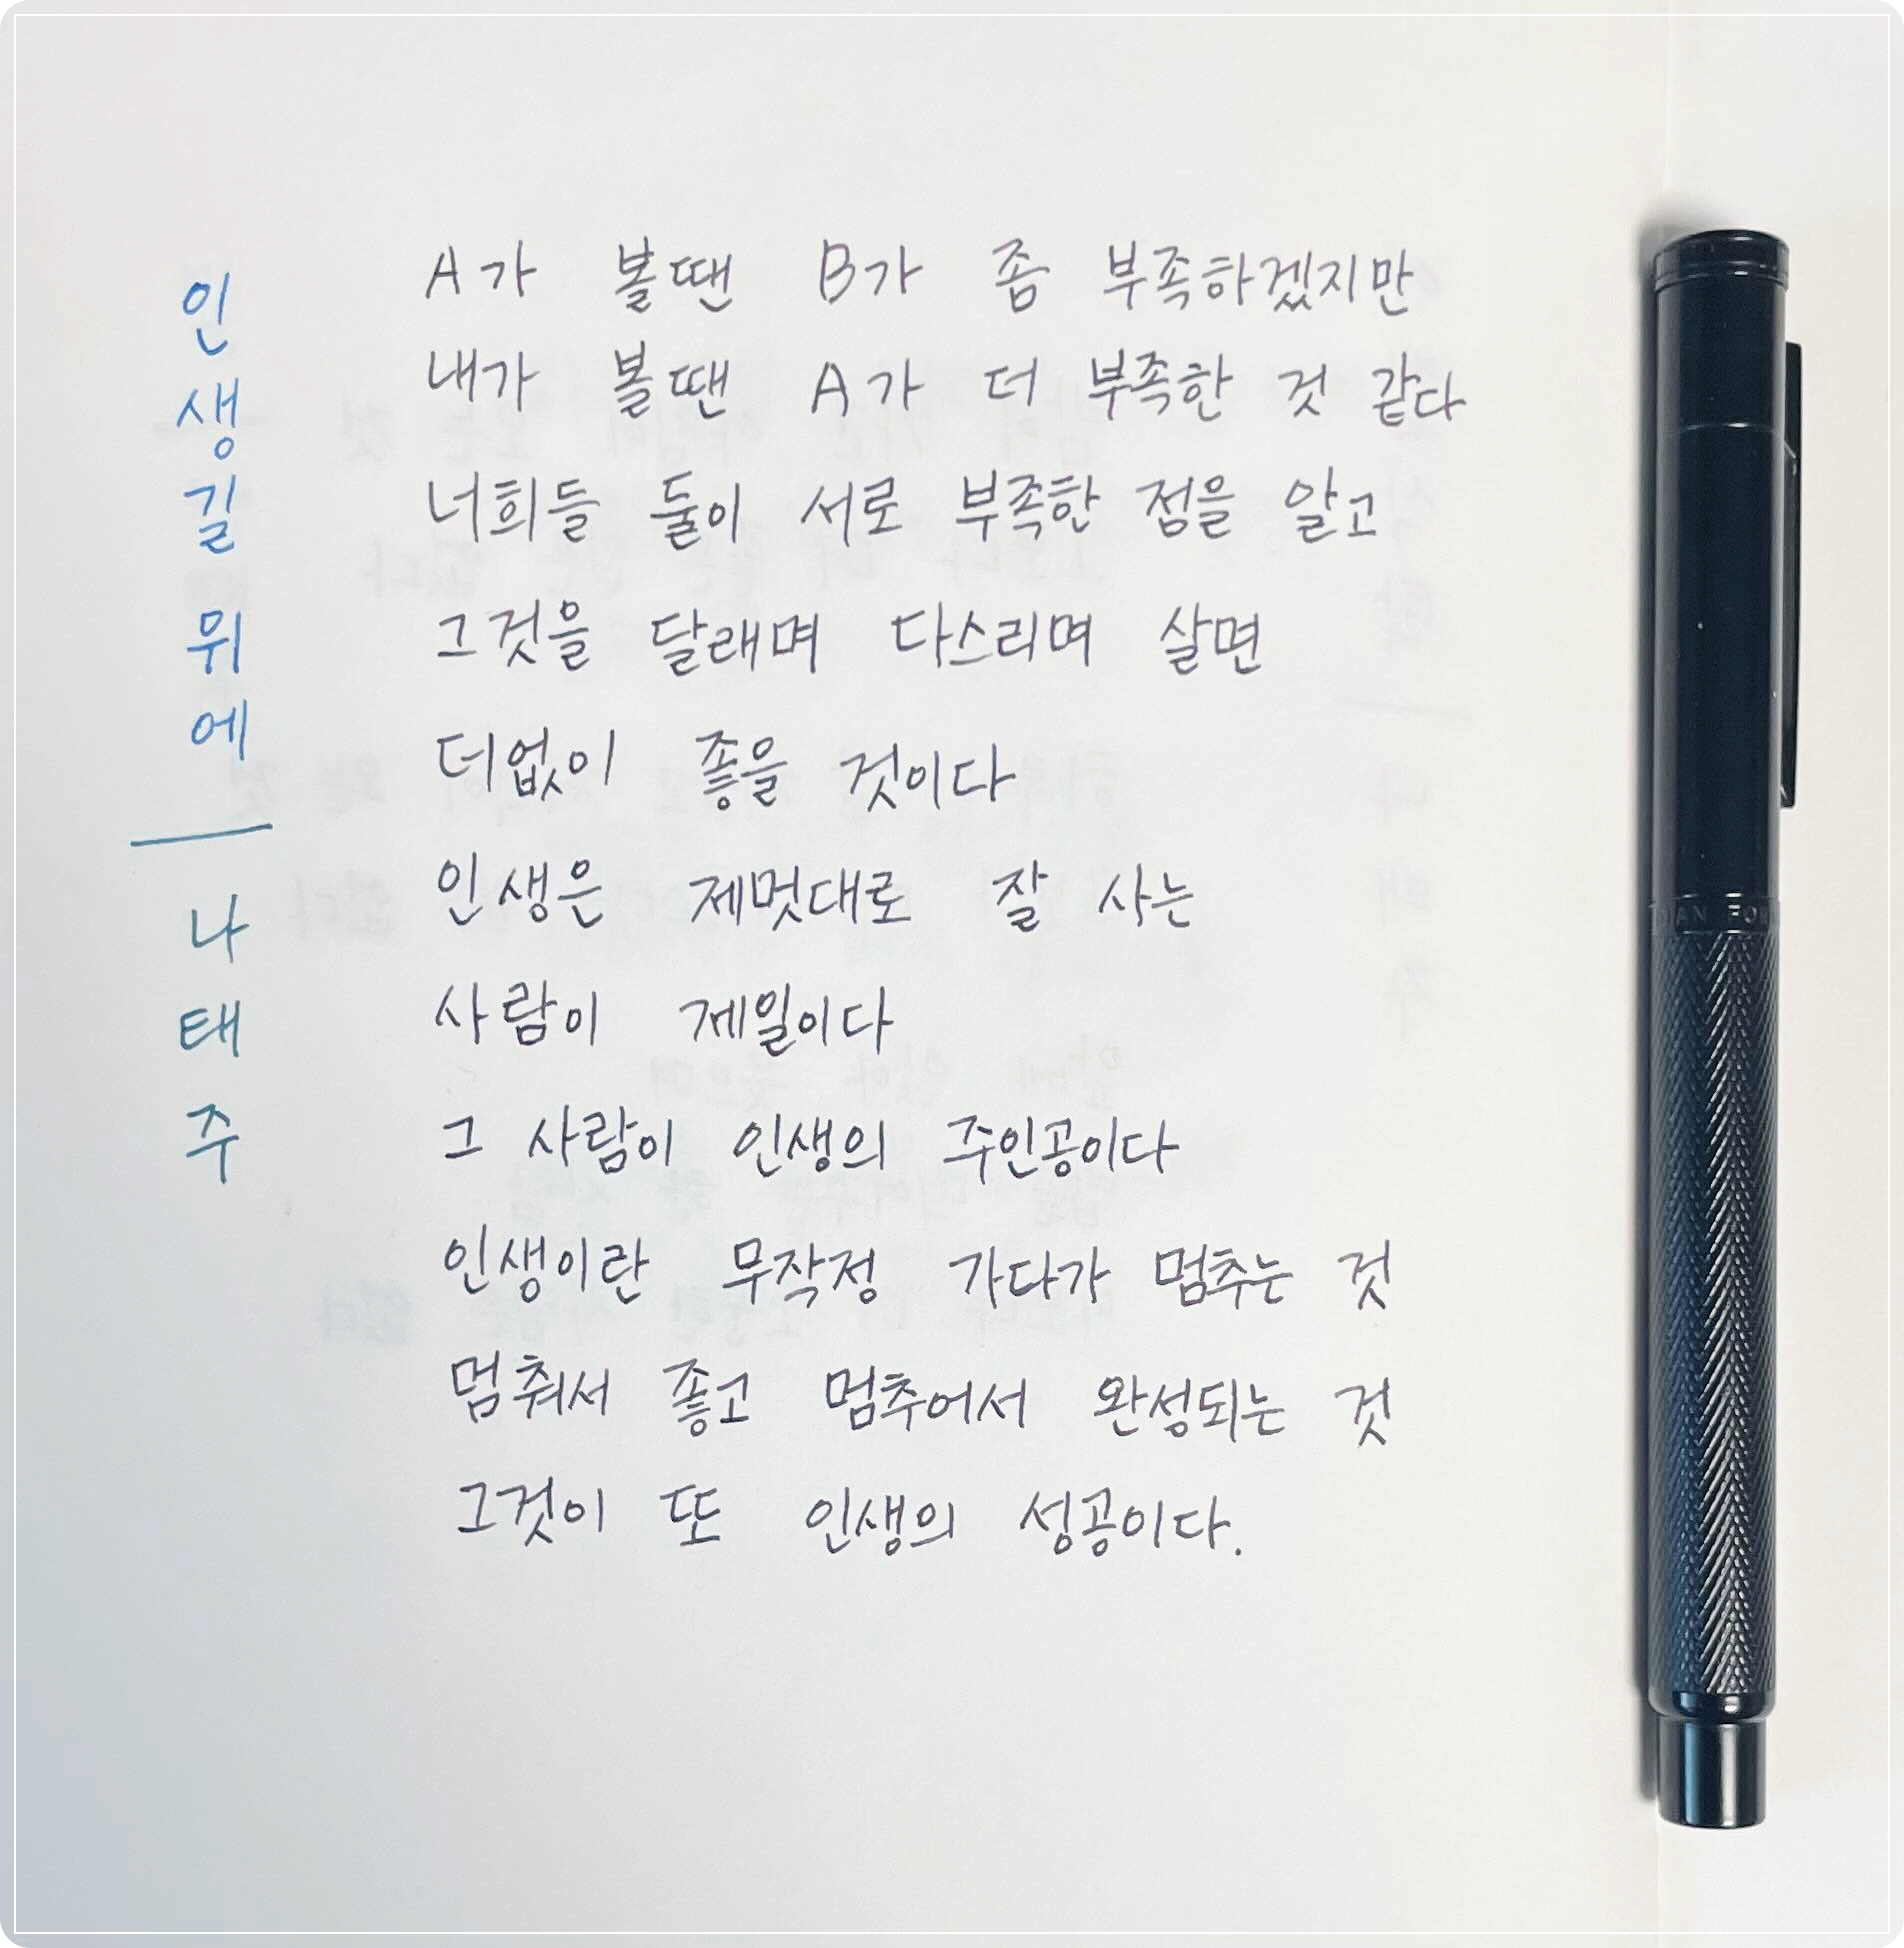 인생길 위에
나태주
A가 볼땐 B가 좀 부족하겠지만
내가 볼땐 A가 더 부족한 것 같다
너희들 둘이 서로 부족한 점을 알고
그것을 달래며 다스리며 살면
더없이 좋을 것이다
인생은 제멋대로 잘 사는
사람이 제일이다
그 사람이 인생의 주인공이다
인생이란 무작정 가다가 멈추는 것
멈춰서 좋고 멈추어서 완성되는 것
그것이 또 인생의 성공이다.